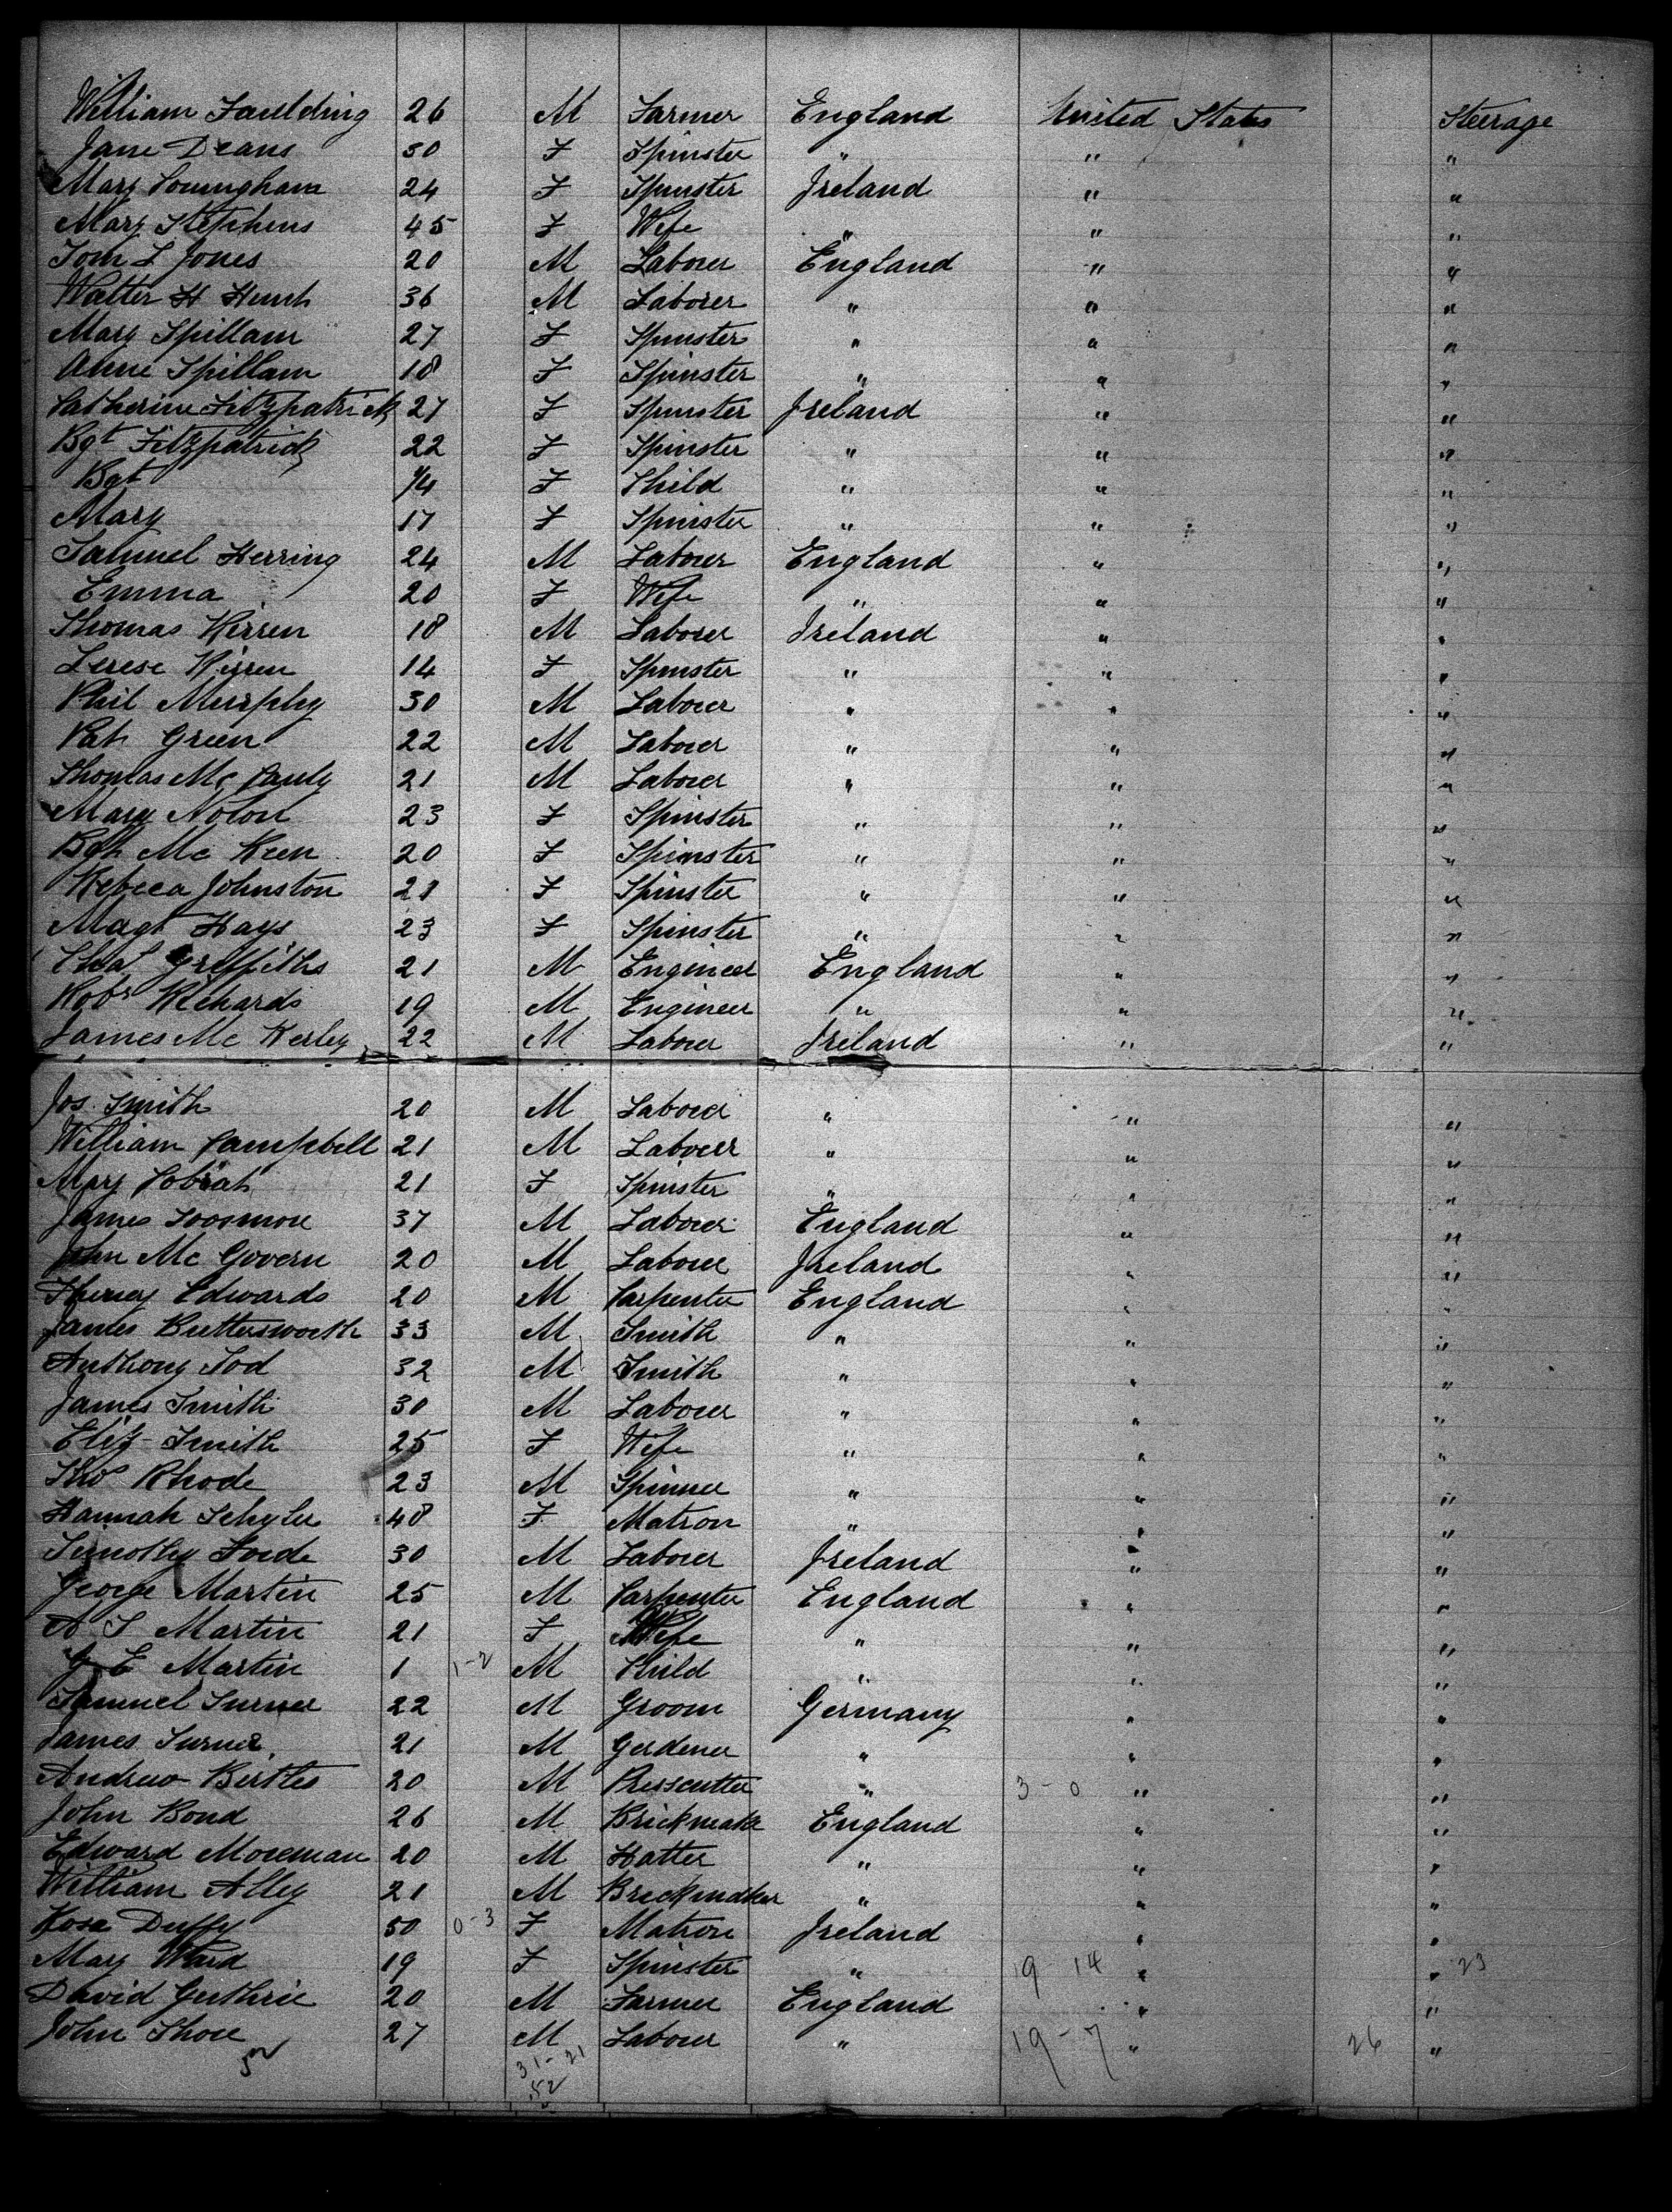 William Faulding 26 M Farmer England United States Steerage
Jane Deans 30 F Spinster " " "
Mary 24 F Spinster Ireland " "
Mary Stephens 45 F Wife " " "
Tom L Jones 20 M Laborer England " "
Walter H 36 M Laborer " " "
Mary Spillam 27 F Spinster " " "
Anne Spillam 18 F Spinster " " "
Catherine Fitzpatrick 27 F Spinster Ireland " "
Bgt Fitzpatrick 22 F Spinster " " "
Bgt F Child " " "
Mary 17 F Spinster " " "
Samuel Herring 24 M Laborer England " "
Emma 20 F Wife " " "
Thomas Kirren 18 M Laborer Ireland " "
Terese Kirren 14 F Spinster " " "
Phil Murphy 30 M Laborer " " "
Pat Green 22 M Laborer " " "
Thomas Mc Cauly 21 M Laborer " " "
Mary Nolon 23 F Spinster " " "
Bgt Mc Keen 20 F Spinster " " "
Rebeca Johnston 21 F Spinster " " "
Magt Hays 23 F Spinster " " "
Griffiths 21 M Engineer England " "
Robt Richards 19 M Engineer " " "
James Mc Kerley 22 M Laborer Ireland " "
Jos. Smith 20 M Laborer " " "
William Campbell 21 M Laborer " " "
Mary 21 F Spinster " " "
James Loosmore 37 M Laborer England " "
John Mc Govern 20 M Laborer Ireland " "
Henry Edwards 20 M Carpenter England " "
James Buttersworth 33 M Smith " " "
Anthony Tod 32 M Smith " " "
James Smith 30 M Laborer " " "
Eliz Smith 25 F Wife " " "
Tho Rhode 23 M Spinner " " "
Hannah Schyler 48 F Matron " " "
Timothy 30 M Laborer Ireland " "
George Martin 25 M Carpenter England " "
A S Martin 21 F Wife " " "
G E Martin 1 1-2 M Child " " "
Samuel Turner 22 M Groom Germany " "
James Turner 21 M Gerdener " " "
Andrew Birtles 20 M Presscutter " 3-0 " "
John Bond 26 M Brickmaker England " "
Edward Moreman 20 M Hatter " " "
William Alley 21 M Brickmaker " " "
Rosa Duffy 50 0-3 F Matron Ireland " "
Mary Ward 19 F Spinster " 19-14 " " 23
David Guthrie 20 M Farmer England " "
John Shore 27 M Laborer " 19-7 " 26 "
52 31-21
52